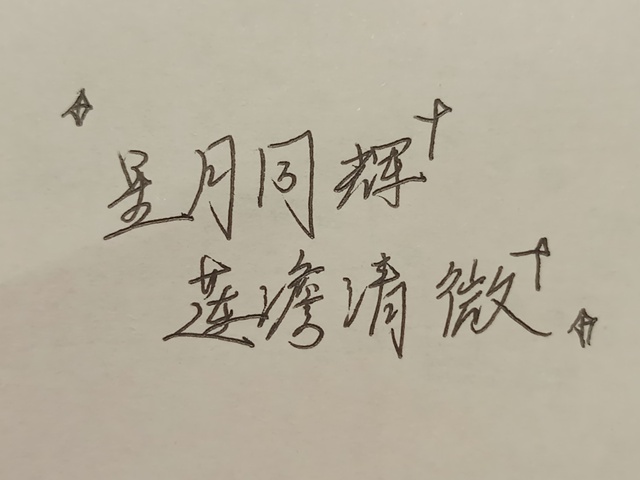 星月同辉
莲澪清微